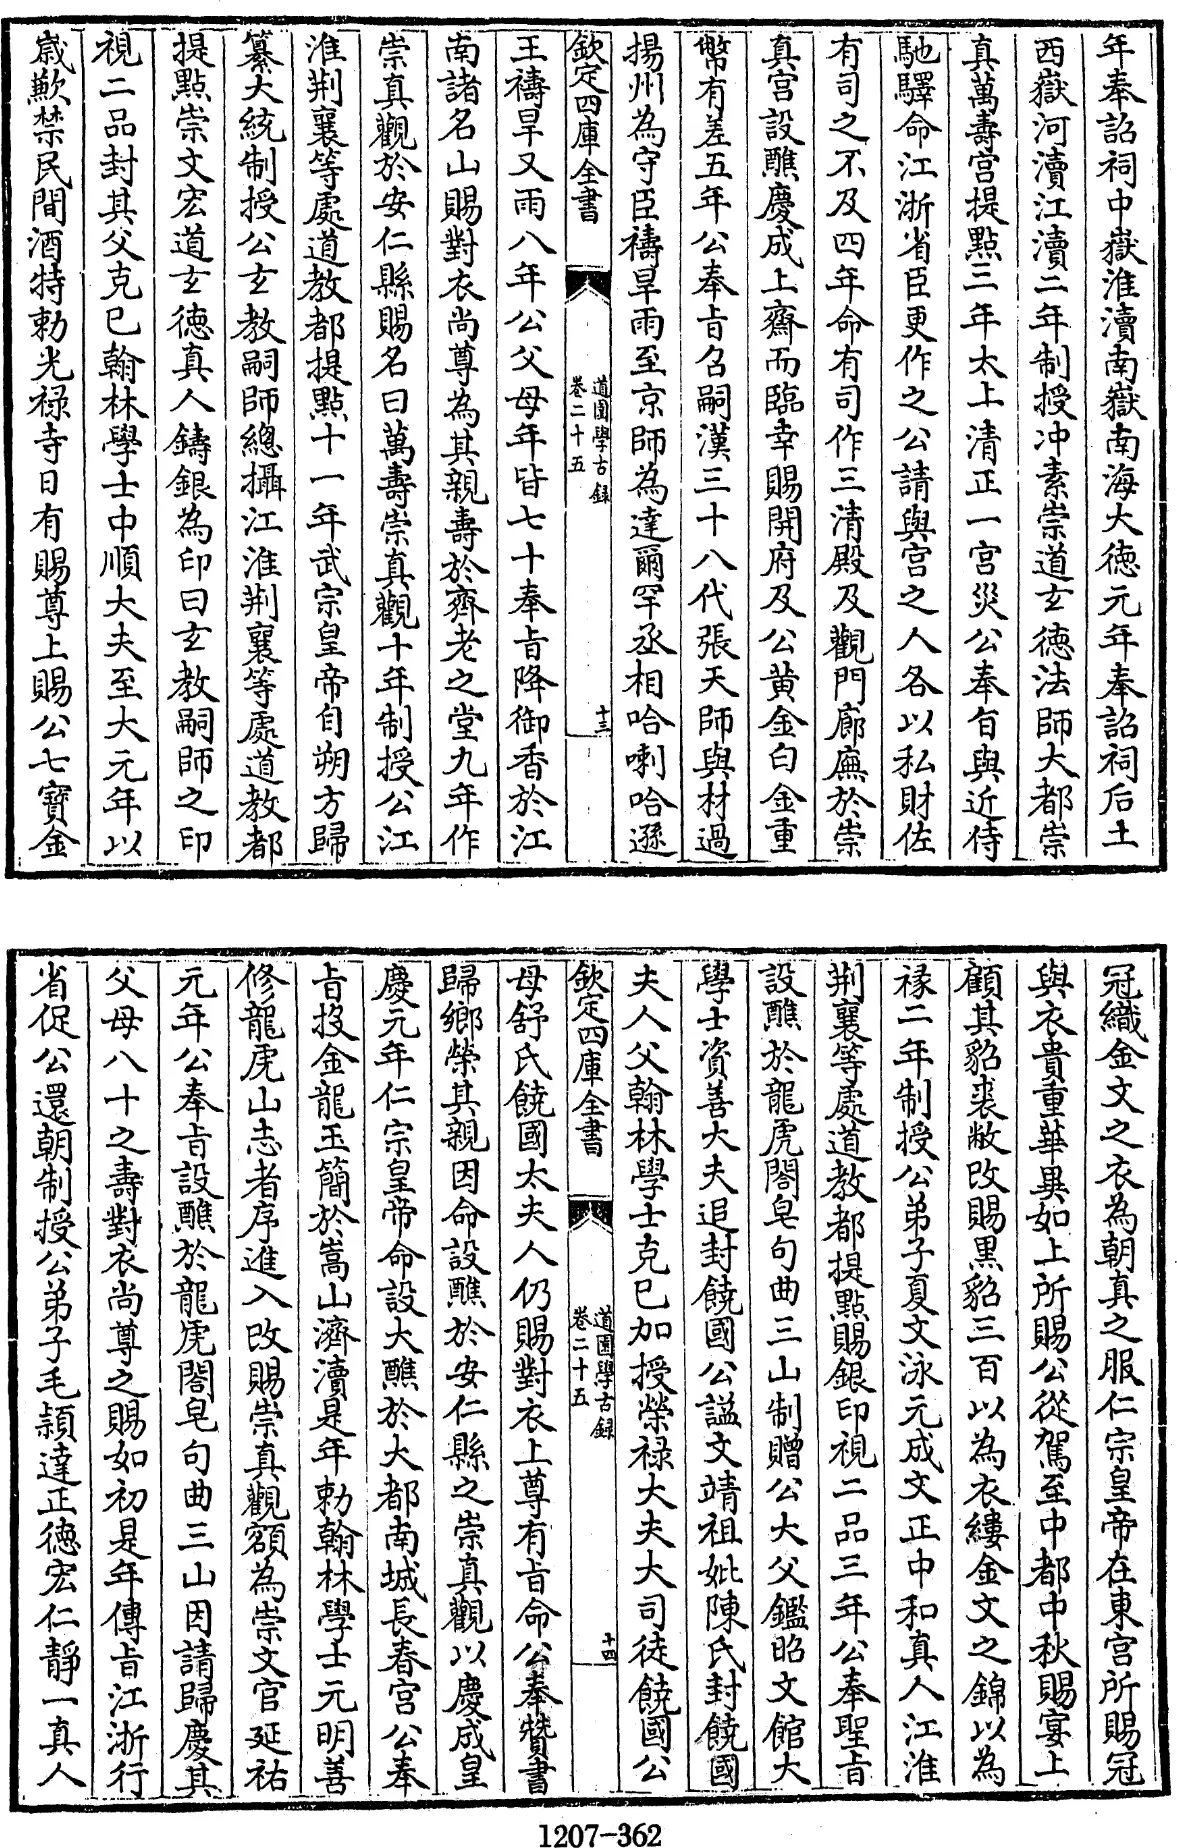 年奉詔祠中嶽淮瀆南嶽南海大德元年奉詔祠后土
西嶽河瀆江瀆二年制授冲素崇道玄德法師大都崇
真萬壽宫提點三年太上清正一宫災公奉旨與近侍
馳驛命江浙省臣更作之公請與宫之人各以私財佐
有司之不及四年命有司作三清殿及觀門廊廡於崇
真宫設醮慶成上齋而臨幸賜開府及公黄金白金重
幣有差五年公奉旨召嗣漢三十八代張天師與材過
揚州為守臣禱旱雨至京師為達爾罕丞相哈喇哈遜
欽定四庫全書
道園學古録
卷二十五
十三
王禱旱又雨八年公父母年皆七十奉旨降御香於江
南諸名山賜對衣尚尊為其親壽於齊老之堂九年作
崇真觀於安仁縣賜名曰萬壽崇真觀十年制授公江
淮荆襄等處道教都提點十一年武宗皇帝自朔方歸
纂大統制授公玄教嗣師總攝江淮荆襄等處道教都
提點崇文宏道玄德真人鑄銀為印曰玄教嗣師之印
視二品封其父克已翰林學士中順大夫至大元年以
歲歉禁民間酒特勅光禄寺日有賜尊上賜公七寶金
冠織金文之衣為朝真之服仁宗皇帝在東宫所賜冠
與衣貴重華異如上所賜公從駕至中都中秋賜宴上
顧其貂裘敝改賜黒貂三百以為衣縷金文之錦以為
褖二年制授公弟子夏文泳元成文正中和真人江淮
荆襄等處道教都提點賜銀印視二品三年公奉聖旨
設醮於龍虎閤皂句曲三山制贈公大父鑑昭文館大
學士資善大夫追封饒國公諡文靖祖妣陳氏封饒國
夫人父翰林學士克已加授榮禄大夫大司徒饒國公
欽定四庫全書
道園學古録
卷二十五
十四
母舒氏饒國太夫人仍賜對衣上尊有旨命公奉贊書
歸鄉榮其親因命設醮於安仁縣之崇真觀以慶成皇
慶元年仁宗皇帝命設大醮於大都南城長春宫公奉
旨投金龍玉簡於嵩山濟瀆是年勅翰林學士元明善
修龍虎山志者序進入改賜崇真觀額為崇文宫延祐
元年公奉旨設醮於龍虎閤皂句曲三山因請歸慶其
父母八十之壽對衣尚尊之賜如初是年傳旨江浙行
省促公還朝制授公弟子毛頴達正德宏仁靜一真人
1207-362